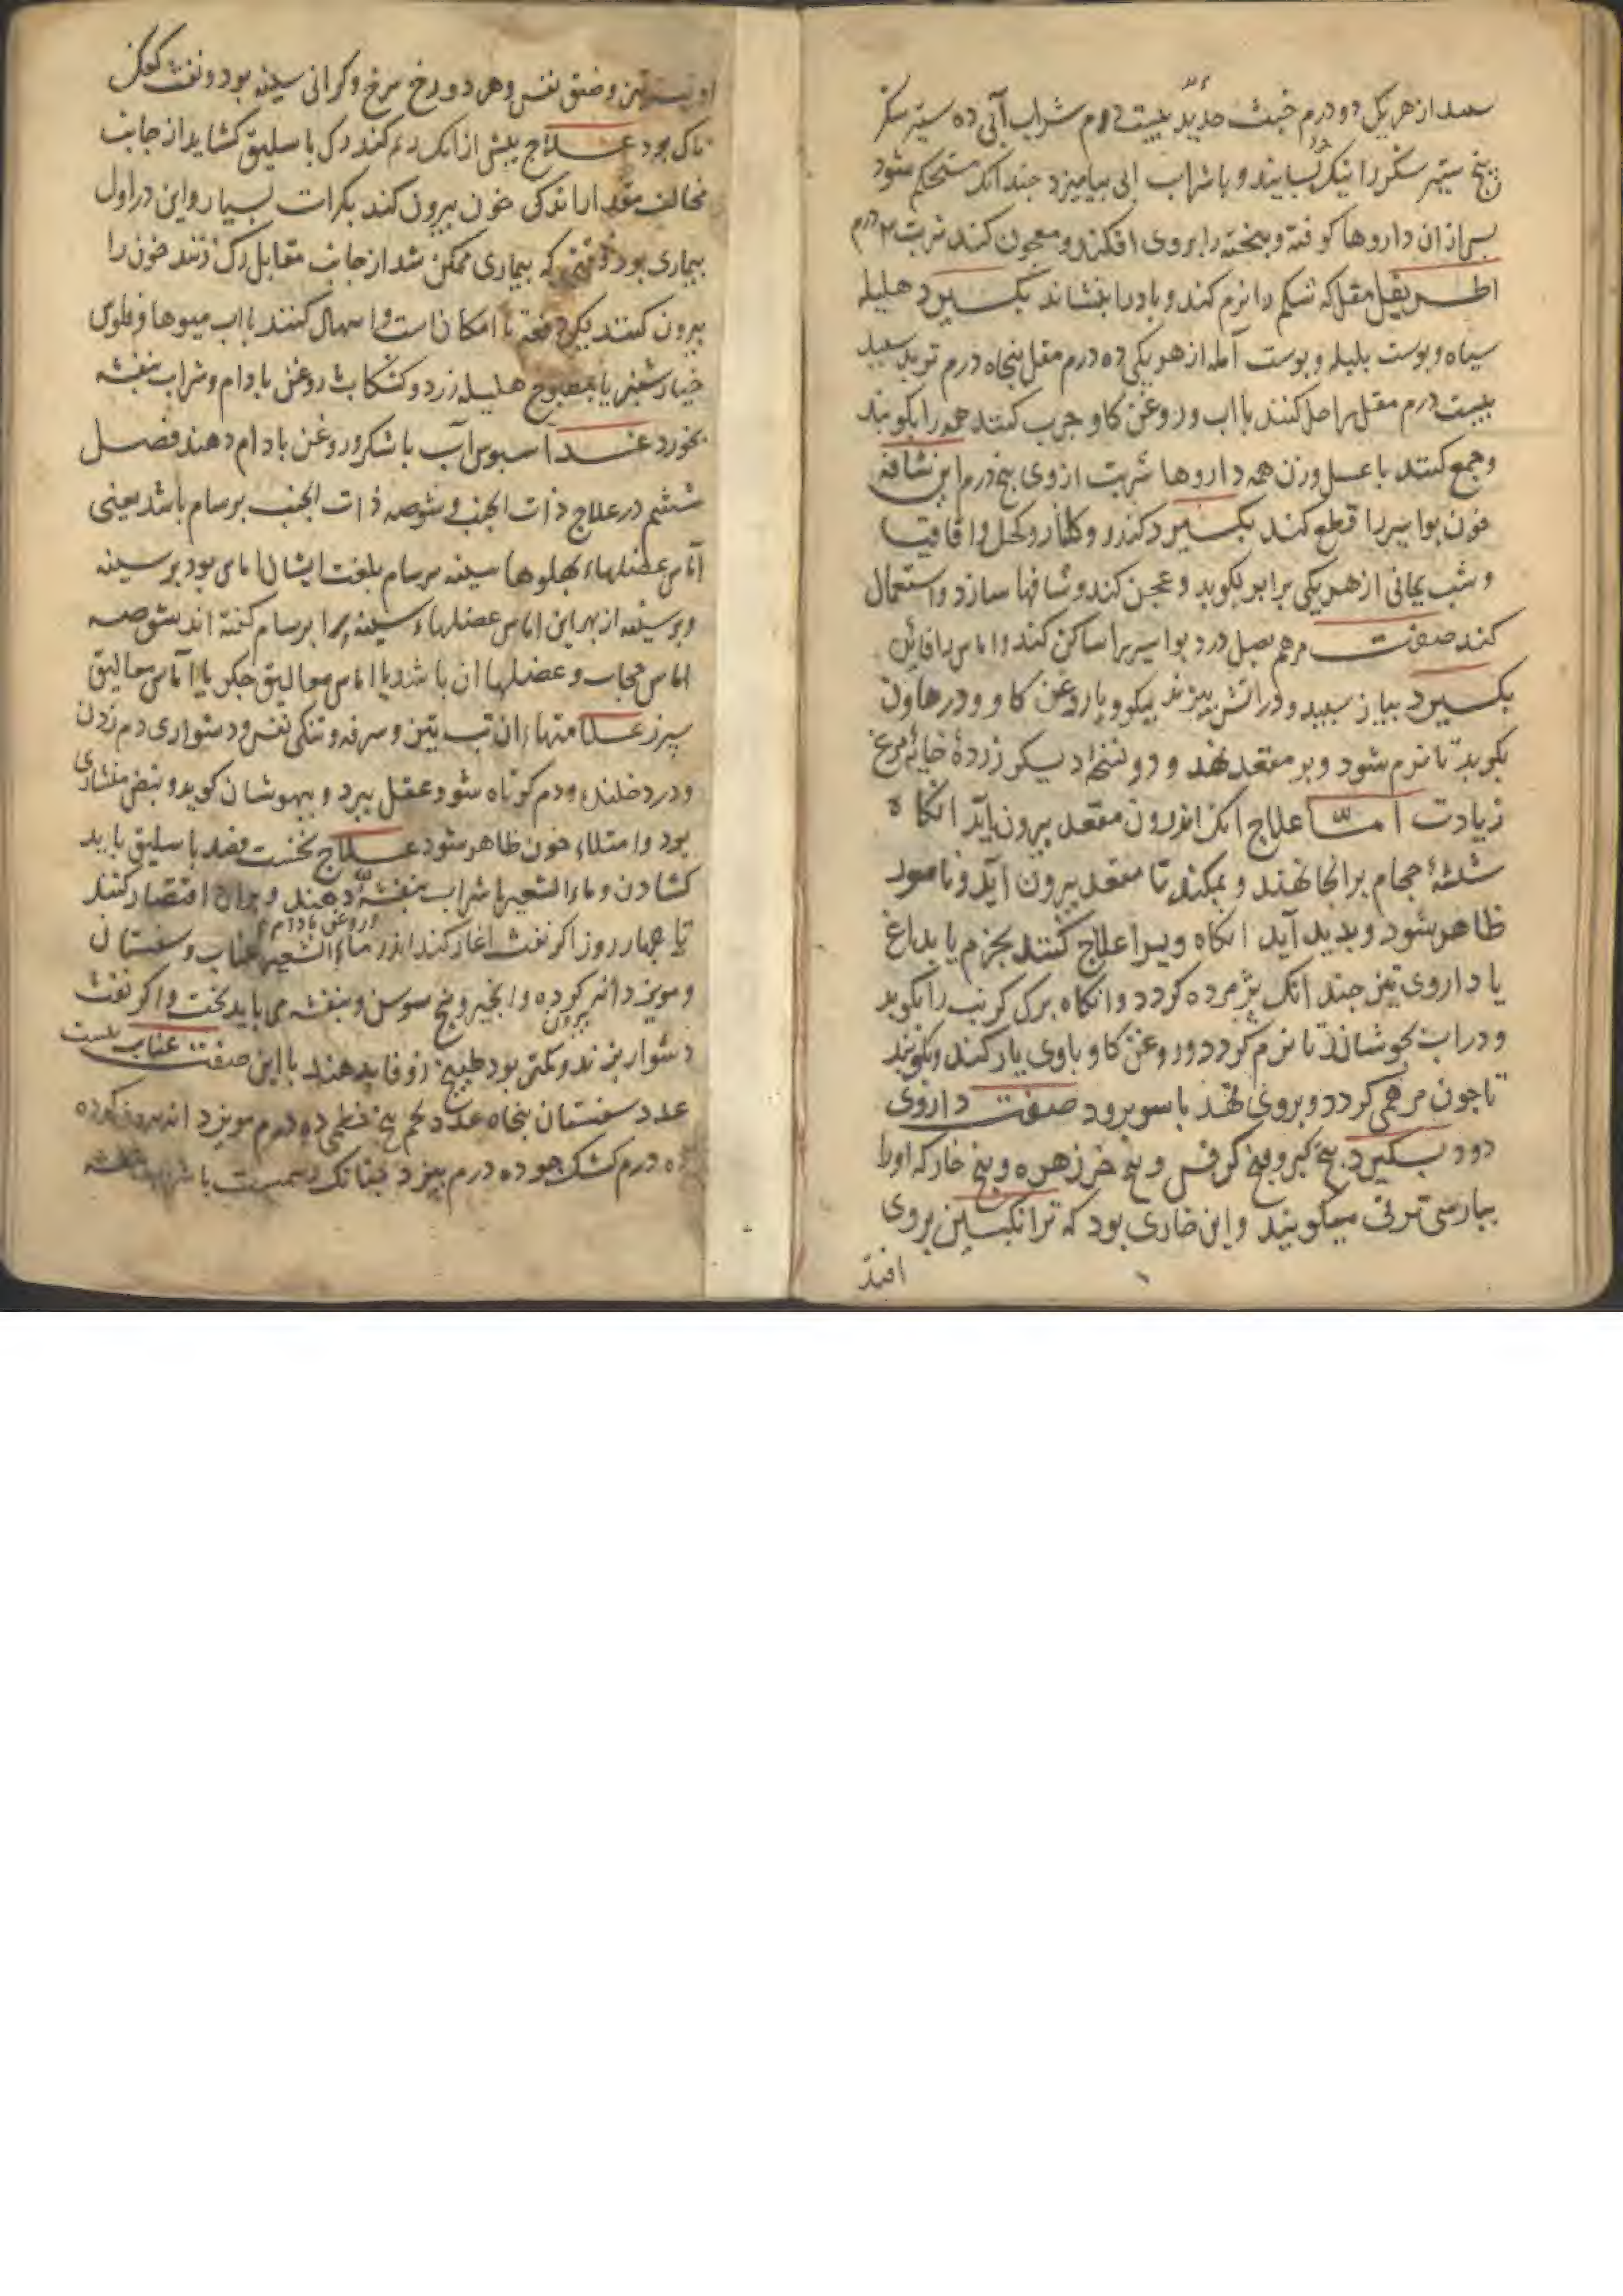 سعد از هر یک دو درم خبث حدید بیست درم شراب آبی ده ستیر سکر
پنج ستیر سکر را نیک بسایند و با شراب ابی بیامیزد جندانک مستحکم شود
بس از ان داروها کوفته و بیخته را بر وی افکند و معجون کنند شربت ۲ درم
اطریفل مقل که شکم را نرم کند و باد را بنشاند بکیرد هلیله
سیاه و بوست بلیله و بوست آمله از هر یکی ده درم مقل پنجاه درم تربد سبید
بیست درم مقل را حل کنند با اب و روغن کاو جرب کنند همه را بکوبند
و جمع کنند با عسل وزن همه داروها شربت از وی پنج درم این شافه
خون بواسیر را قطع کند بکیرد کندر و کلنار و کحل و اقاقیا
و شب یمانی از هر یکی برابر بکوبد و عجن کند و شافها سازد و استعمال
کند صفت مرهم بصل درد بواسیر را ساکن کند و اماس را
بکیرد بیاز سبید و در اتش بپزند نیکو و با روغن کاو و در هاون
بکوبد تا نرم شود و بر مقعد نهد و دو نسخه دیکر زردهٔ خایهٔ مرغ
زیادت امّا علاج انک اندرون مقعد بیرون باید انکاه
شیشهٔ حجام بر انجا نهند و بمکند تا مقعد بیرون آید و ناصور
ظاهر شود و بدید آید انکاه ویرا علاج کنند بجزم یا بداغ
یا داروی تیز جند انک پژمرده کردد و انکاه برک کرنب را بکوبد
و در اب بجوشاند تا نرم کردد و روغن کاو با وی یار کند و بکوبند
تا جون مرهمی کردد و بر وی نهد با سور برود صفت داروی
دود بکیرد بیخ کبر و بیخ کرفس و بیخ خرزهره و بیخ خار که اورا
ببارسی ترنی میکویند و این خاری بود که ترانکبین بر وی
افتد
تیز و ضیق نفس و هر دو رخ سرخ و کرانی سینه بود و نفث کفک
ناک بود علاج بیش از انک ورم کند رک باسلیق کشاید از جانب
مخالف مقدار اندکی خون بیرون کند بکرات بسیار و این در اول
بیماری بود وقتی که بیماری ممکن شد از جانب مقابل رک زنند خون را
بیرون کنند بیکدفعه تا امکانست و اسهال کنند با اب میوها و فلوس
خیارشنبر یا بمطبوخ هلیله زرد و کشکاب و روغن بادام و شراب بنفشه
بخورد غذا سبوس آب با شکر و روغن بادام دهند فصل
ششم در علاج ذات الجنب و شوصه ذات الجنب برسام باشد یعنی
آماس عضلهاء بهلوها سینه سرسام بلغت ایشان اماس بود بر سینه
و بر سینه از بهر این اماس عضلهاء سینه را برسام کفته اند شوصه
اماس حجاب و عضلها ان باشد یا اماس معالیق جکر یا آماس معالیق
سپرز علامتهاء ان تب تیز و سرفه و تنکی نفس و دشواری دم زدن
و درد خلنده و دم کوتاه شود عقل ببرد و بیهوشان کوید و نبض منشاری
بود و امتلاء خون ظاهر شود علاج نخست فصد باسلیق باید
کشادن و ماء الشعیر با شراب بنفشه دهند و بران اقتصار کنند
و روغن بادام
تا جهار روز اکر نفث اغاز کند اندر ماء الشعیر عناب و سبستان
و مویز دانه کرده و انجیر و بیخ سوسن و بنفشه می باید بخت و اکر نفث
بیرون
دشوار بزند و کمتر بود طبیخ زوفا بدهند با این صفت عناب بیست
عدد سبستان بنجاه عدد تخم بیخ خطمی ده درم مویز دانه بیرون کرده
ده درم کشک جو ده درم بپزد جنانک رسمست با شراب بنفشه